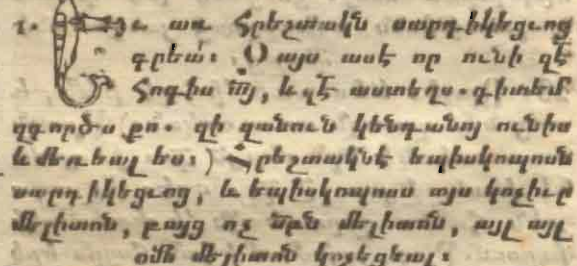 1. Եւ առ Հրեշտակն սարդիկեցւոց
գրեա՛. Զայս ասէ որ ունի զէ
Հոգիս այ, և զէ աստեղս. գիտեմ
զգործս քո. զի զանուն կենդանոյ ունիս
և մեռեալ ես:) Հրեշտակնէ եպիսկոպոսն
սարդիկեցւոց, և եպիսկոպոսս այս կոչիւր
մելիտոն, բայց ոչ սրն մելիտոն, այլ այլ
ոմն մելիտոն կոչեցեալ: